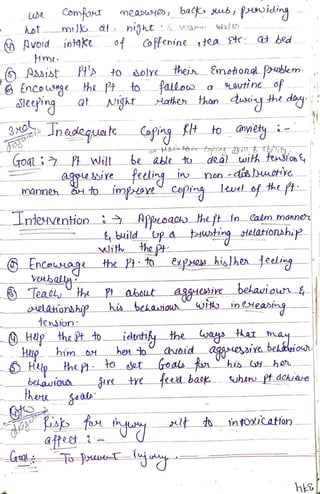 use Comfort measures, back rub, providing
hot milk at night
④ Avoid intake of Coffenine, tea etc. at bed
time.
⑤ Assist Pt's to solve their Emotional problem.
⑥ Encourage the Pt to fallow a routine of
sleeping at Night rather than during the day.
3rd Inadequate Coping R/t to anxiety :-
or Maintain Coping skill & ability.
Goal :→ Pt will be able to deal with tensions,
aggressive feeling in non-distructive
manner or to improve Coping level of the pt.
Intervention :→ Approach the pt In calm manner
& build up a trusting relationship
with the pt.
② Encourage the Pt. to express his/her feeling
verbally.
③ Teach the Pt about aggressive behaviour &
relationship his behaviour with increasing
tension.
④ Help the pt to identify the ways that may
Help him or her to avoid aggressive behaviour.
⑤ Help the pt. to set Goals for his or her
behaviour give +ve feed back when pt achieve
there goals.
Risk for injury r/t to intoxication
affect :-
Goal: To prevent injury.